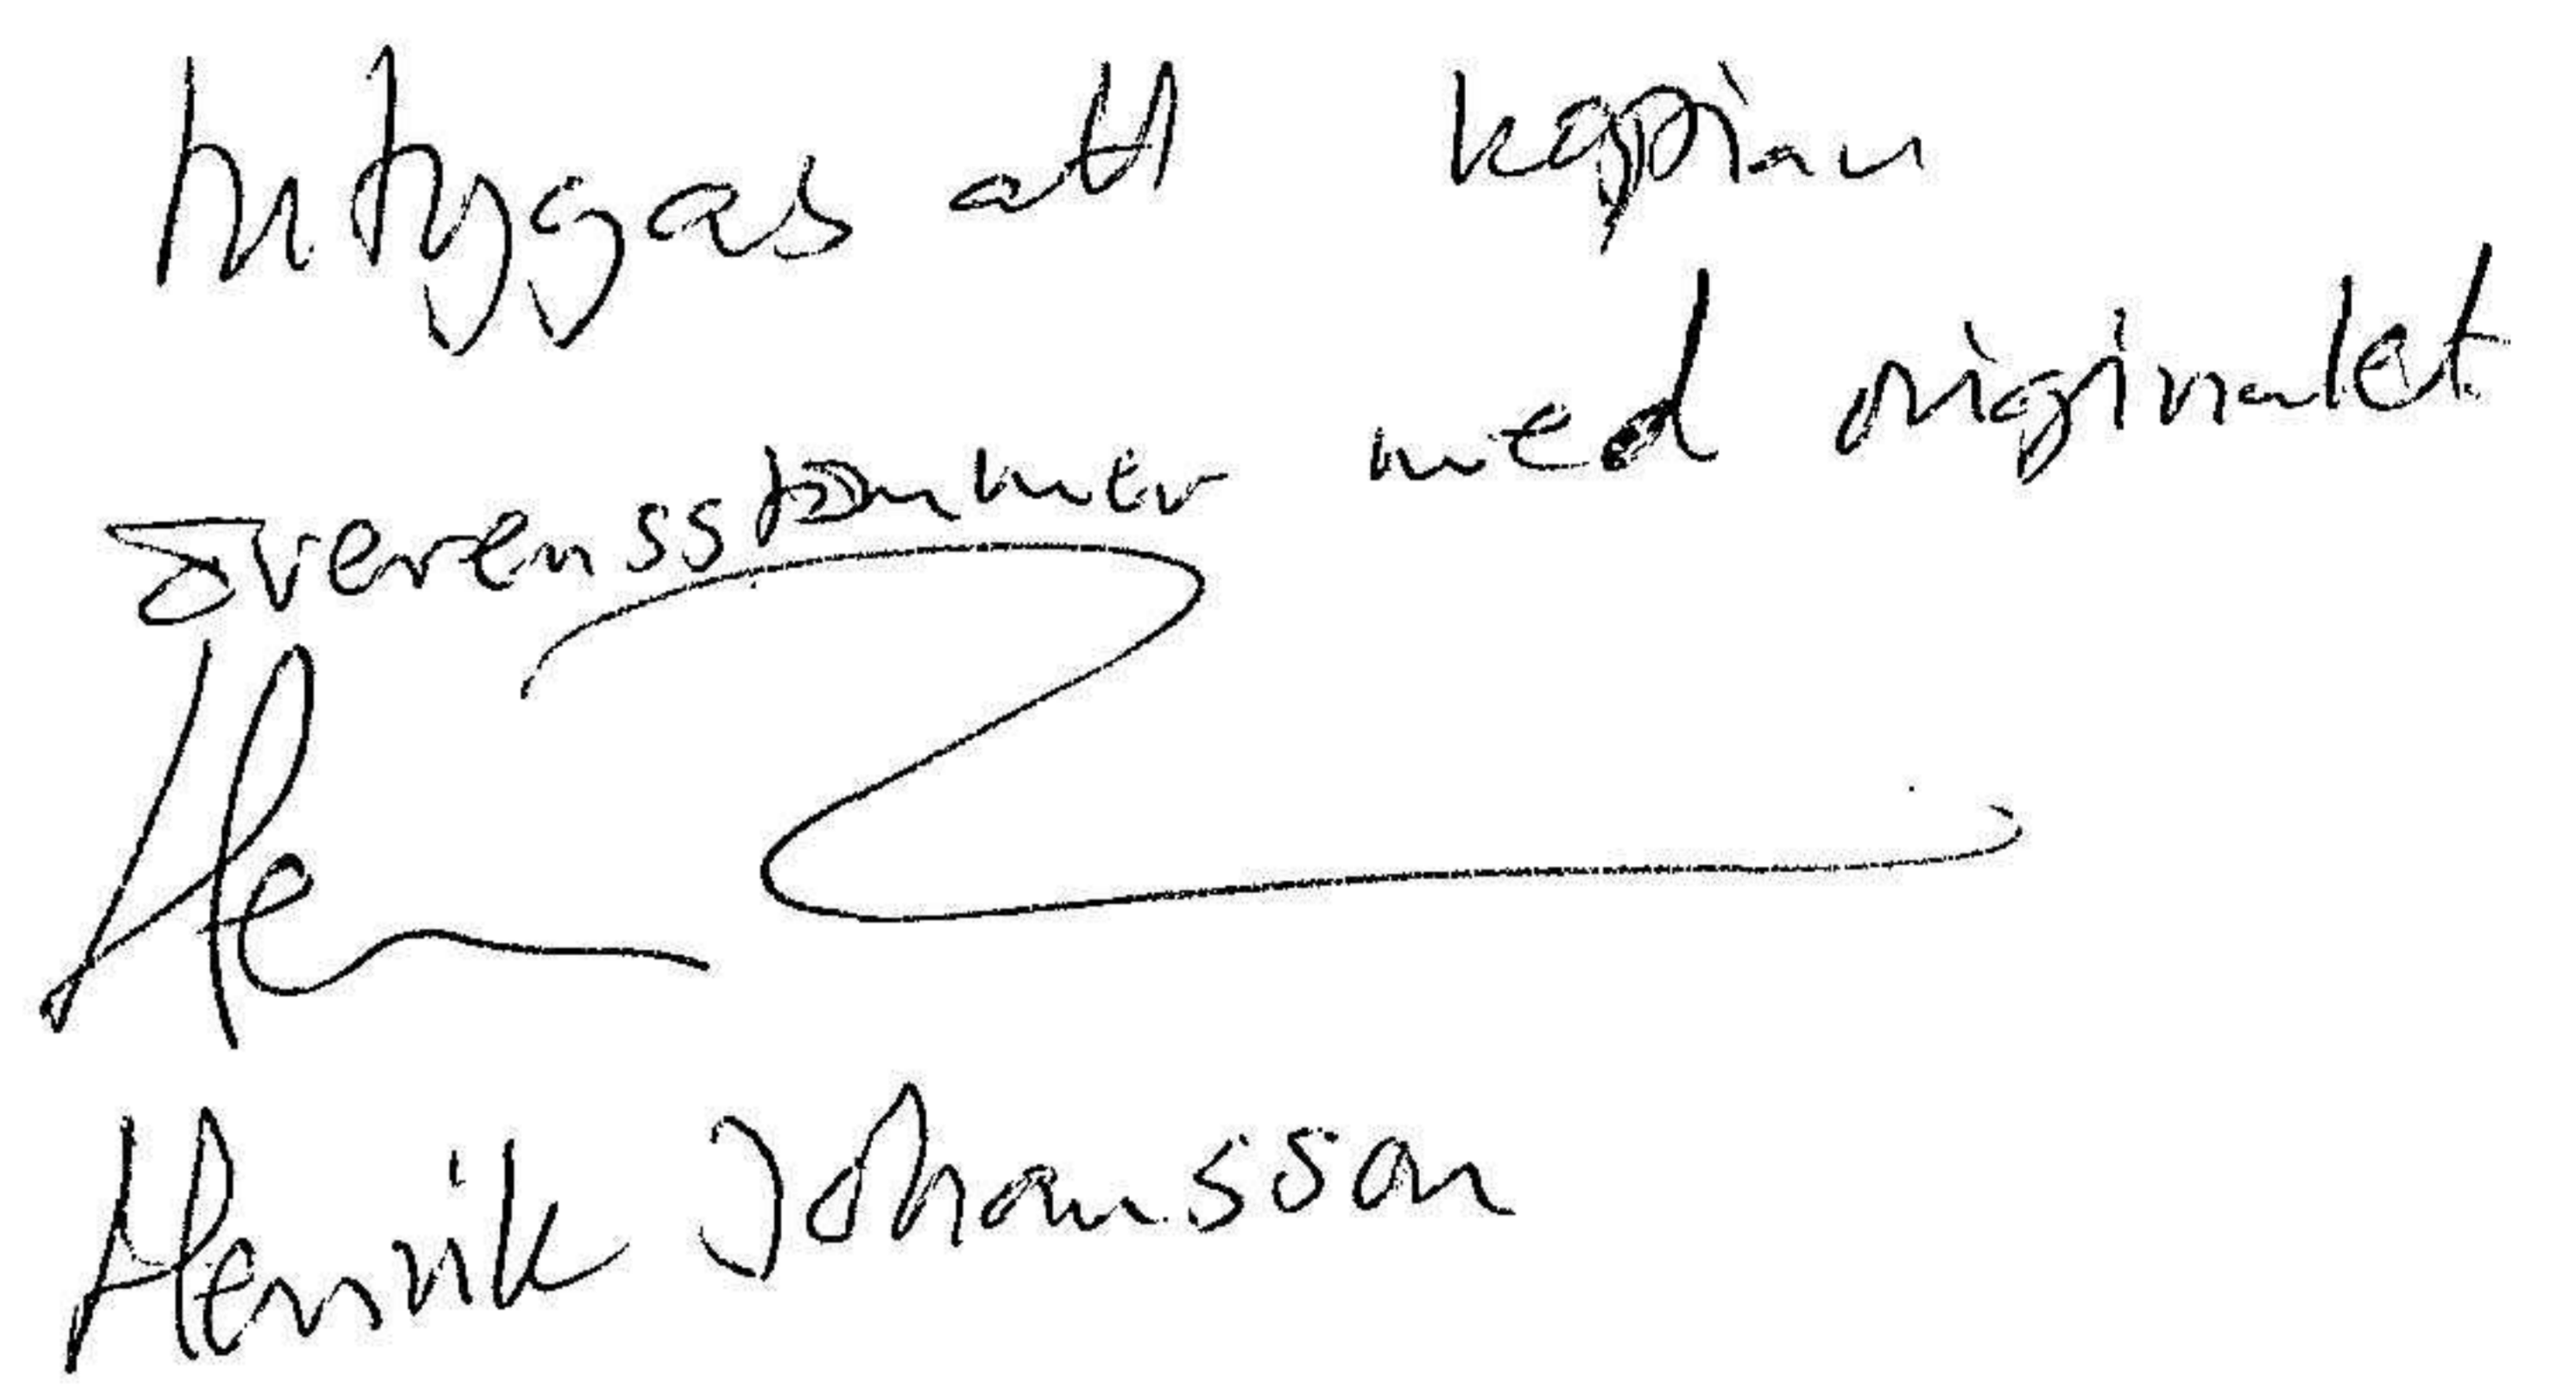 Intygas att kopian
överensstämmer med originalet
Henrik Johansson